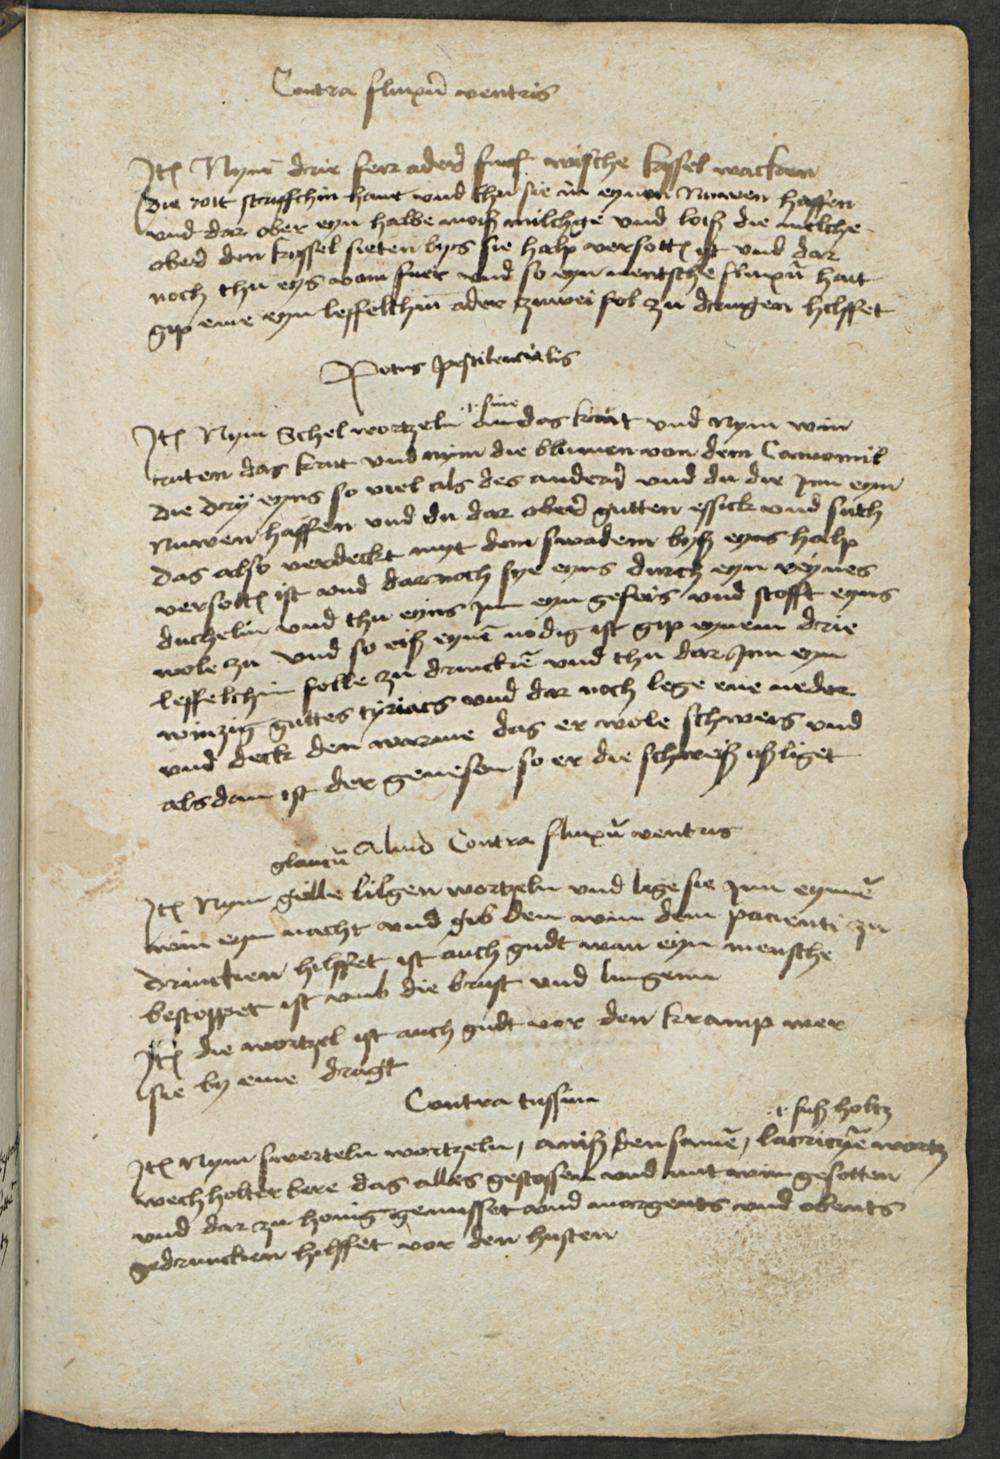 Contra fluxũ ventris
Jtẽ Nym drie fier aderˀ funf wische kyssel wacken
die rott streyffchin hant vnd thu sie in eynen nuwen haffen
vnd dar ober eyn halbe moiß milchge vnd loiß die milche
oberˀ den kyssel sieten bys sie halp versottẽ ist vnd dar
noch thu eyß vom fuer vnd so eyn mentsche fluxũ hait
gip eme eyn leffelchin ader zwei fol zu dringen hilffet
Potus pestilencialis
Jtẽ Nym Schelwortzeln .i. sine das krut vnd nym win
ruten das krut vnd nym die blumen von dem Camomil
die dry eyns so viel als des anderˀ vnd du die jnn eyn
nuwen haffen vnd du dar oberˀ gutten essick vnd suth
das also verdeckt myt dem swadem byß eyns halp
versottẽ ist vnd darnoch sye eyns durch eyn reynes
duchelin vnd thu eyns jn eyn gefeis vnd stofft eyns
wole zu vnd so eiß eynẽ nodig ist gip eynem drie
leffelchin folle zu drinckẽ vnd thu dar jnn eyn
winzig guttes tyriacs vnd dar noch lege ene neder
vnd deck den warme das er wole schweis vnd
als dan ist der genesen so er die schweiß ußliget
Aliud Contra fluxũ ventris
glaucũ
Jtẽ Nym gelle lilgen wortzeln vnd lege sie jnn eynnẽ
win eyn nacht vnd gib den win dem pacienti zu
drincken hilffet ist auch gudt wan eyn mensche
bestoppet ist vmb die brust vnd lungenn
Jtẽ die wortzel ist auch gudt vor den kramp wer
sie by eme dragt
Contra tussim
.i. suß holtz
Jtẽ Nym swerteln wortzeln, aniß den samẽ, lacricyẽ wortz
wechholter bere das alles gestossen vnd mit win gesotten
vnd dar zu honig gemisset vnd morgents vnd obents
gedruncken hilffet vor den husten